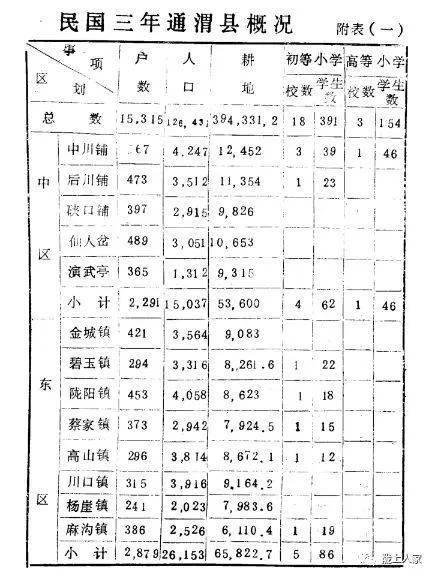 民国三年通渭县概况 附表(一)
事项 区划 户数 人口 耕地 初等小学 校数 学生数 高等小学 校数 学生数
总数 15,315 126,43 394,331,2 18 391 3 154
中区
中川铺 67 4,247 12,452 3 39 1 46
后川铺 473 3,512 11,354 1 23
硖口铺 397 2,915 9,826
仙人岔 489 3,051 10,653
演武亭 365 1,312 9,315
小计 2,291 15,037 53,600 4 62 1 46
东区
金城镇 421 3,564 9,083
碧玉镇 294 3,316 8,261.6 1 22
陇阳镇 453 4,058 8,623 1 18
蔡家镇 373 2,942 7,924.5 1 15
高山镇 296 3,814 8,672.1 1 12
川口镇 315 3,916 9,164.2
杨崖镇 241 2,023 7,983.6
麻沟镇 386 2,526 6,110.4 1 19
小计 2,879 26,153 65,822.7 5 86
陇上人家